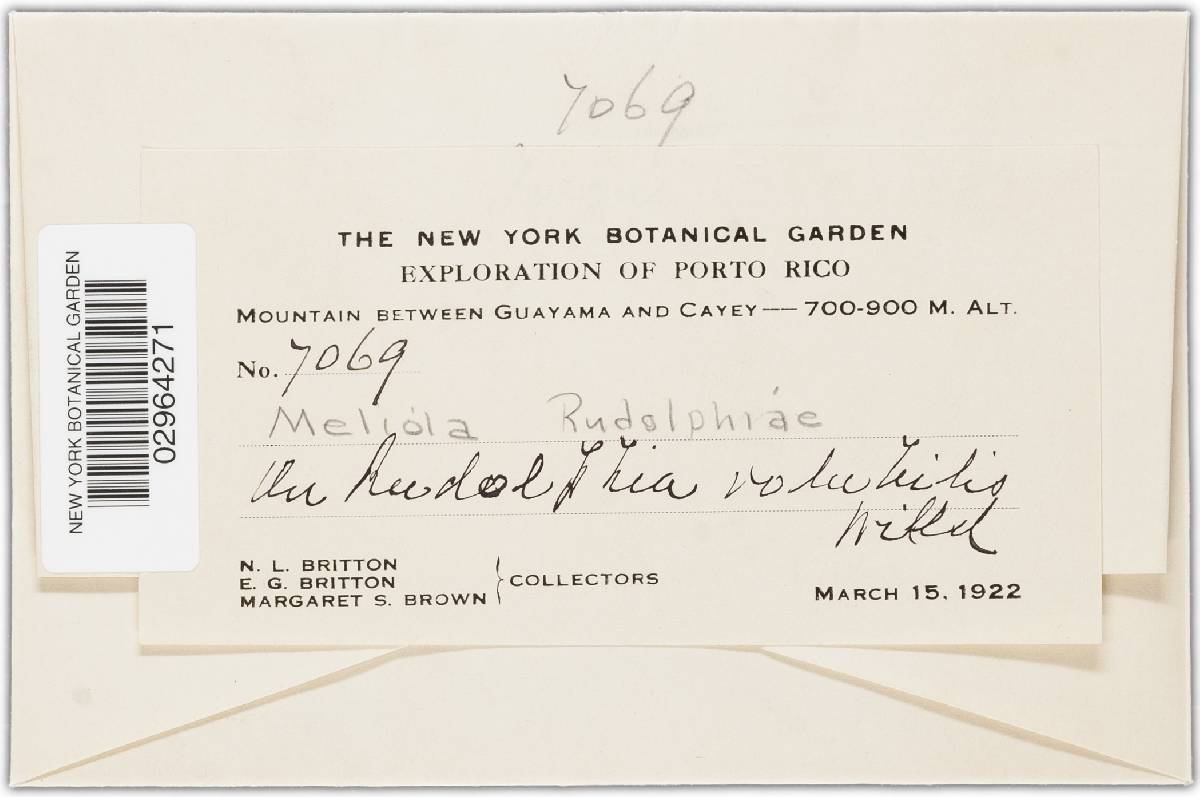 7069
THE NEW YORK BOTANICAL GARDEN
EXPLORATION OF PORTO RICO
MOUNTAIN BETWEEN GUAYAMA AND CAYEY — 700-900 M. ALT.
No. 7069
Meliola Rudolphiae
On Rudolphia volubilis
Willd
N. L. BRITTON
E. G. BRITTON
MARGARET S. BROWN
} COLLECTORS
MARCH 15, 1922
NEW YORK BOTANICAL GARDEN
02964271